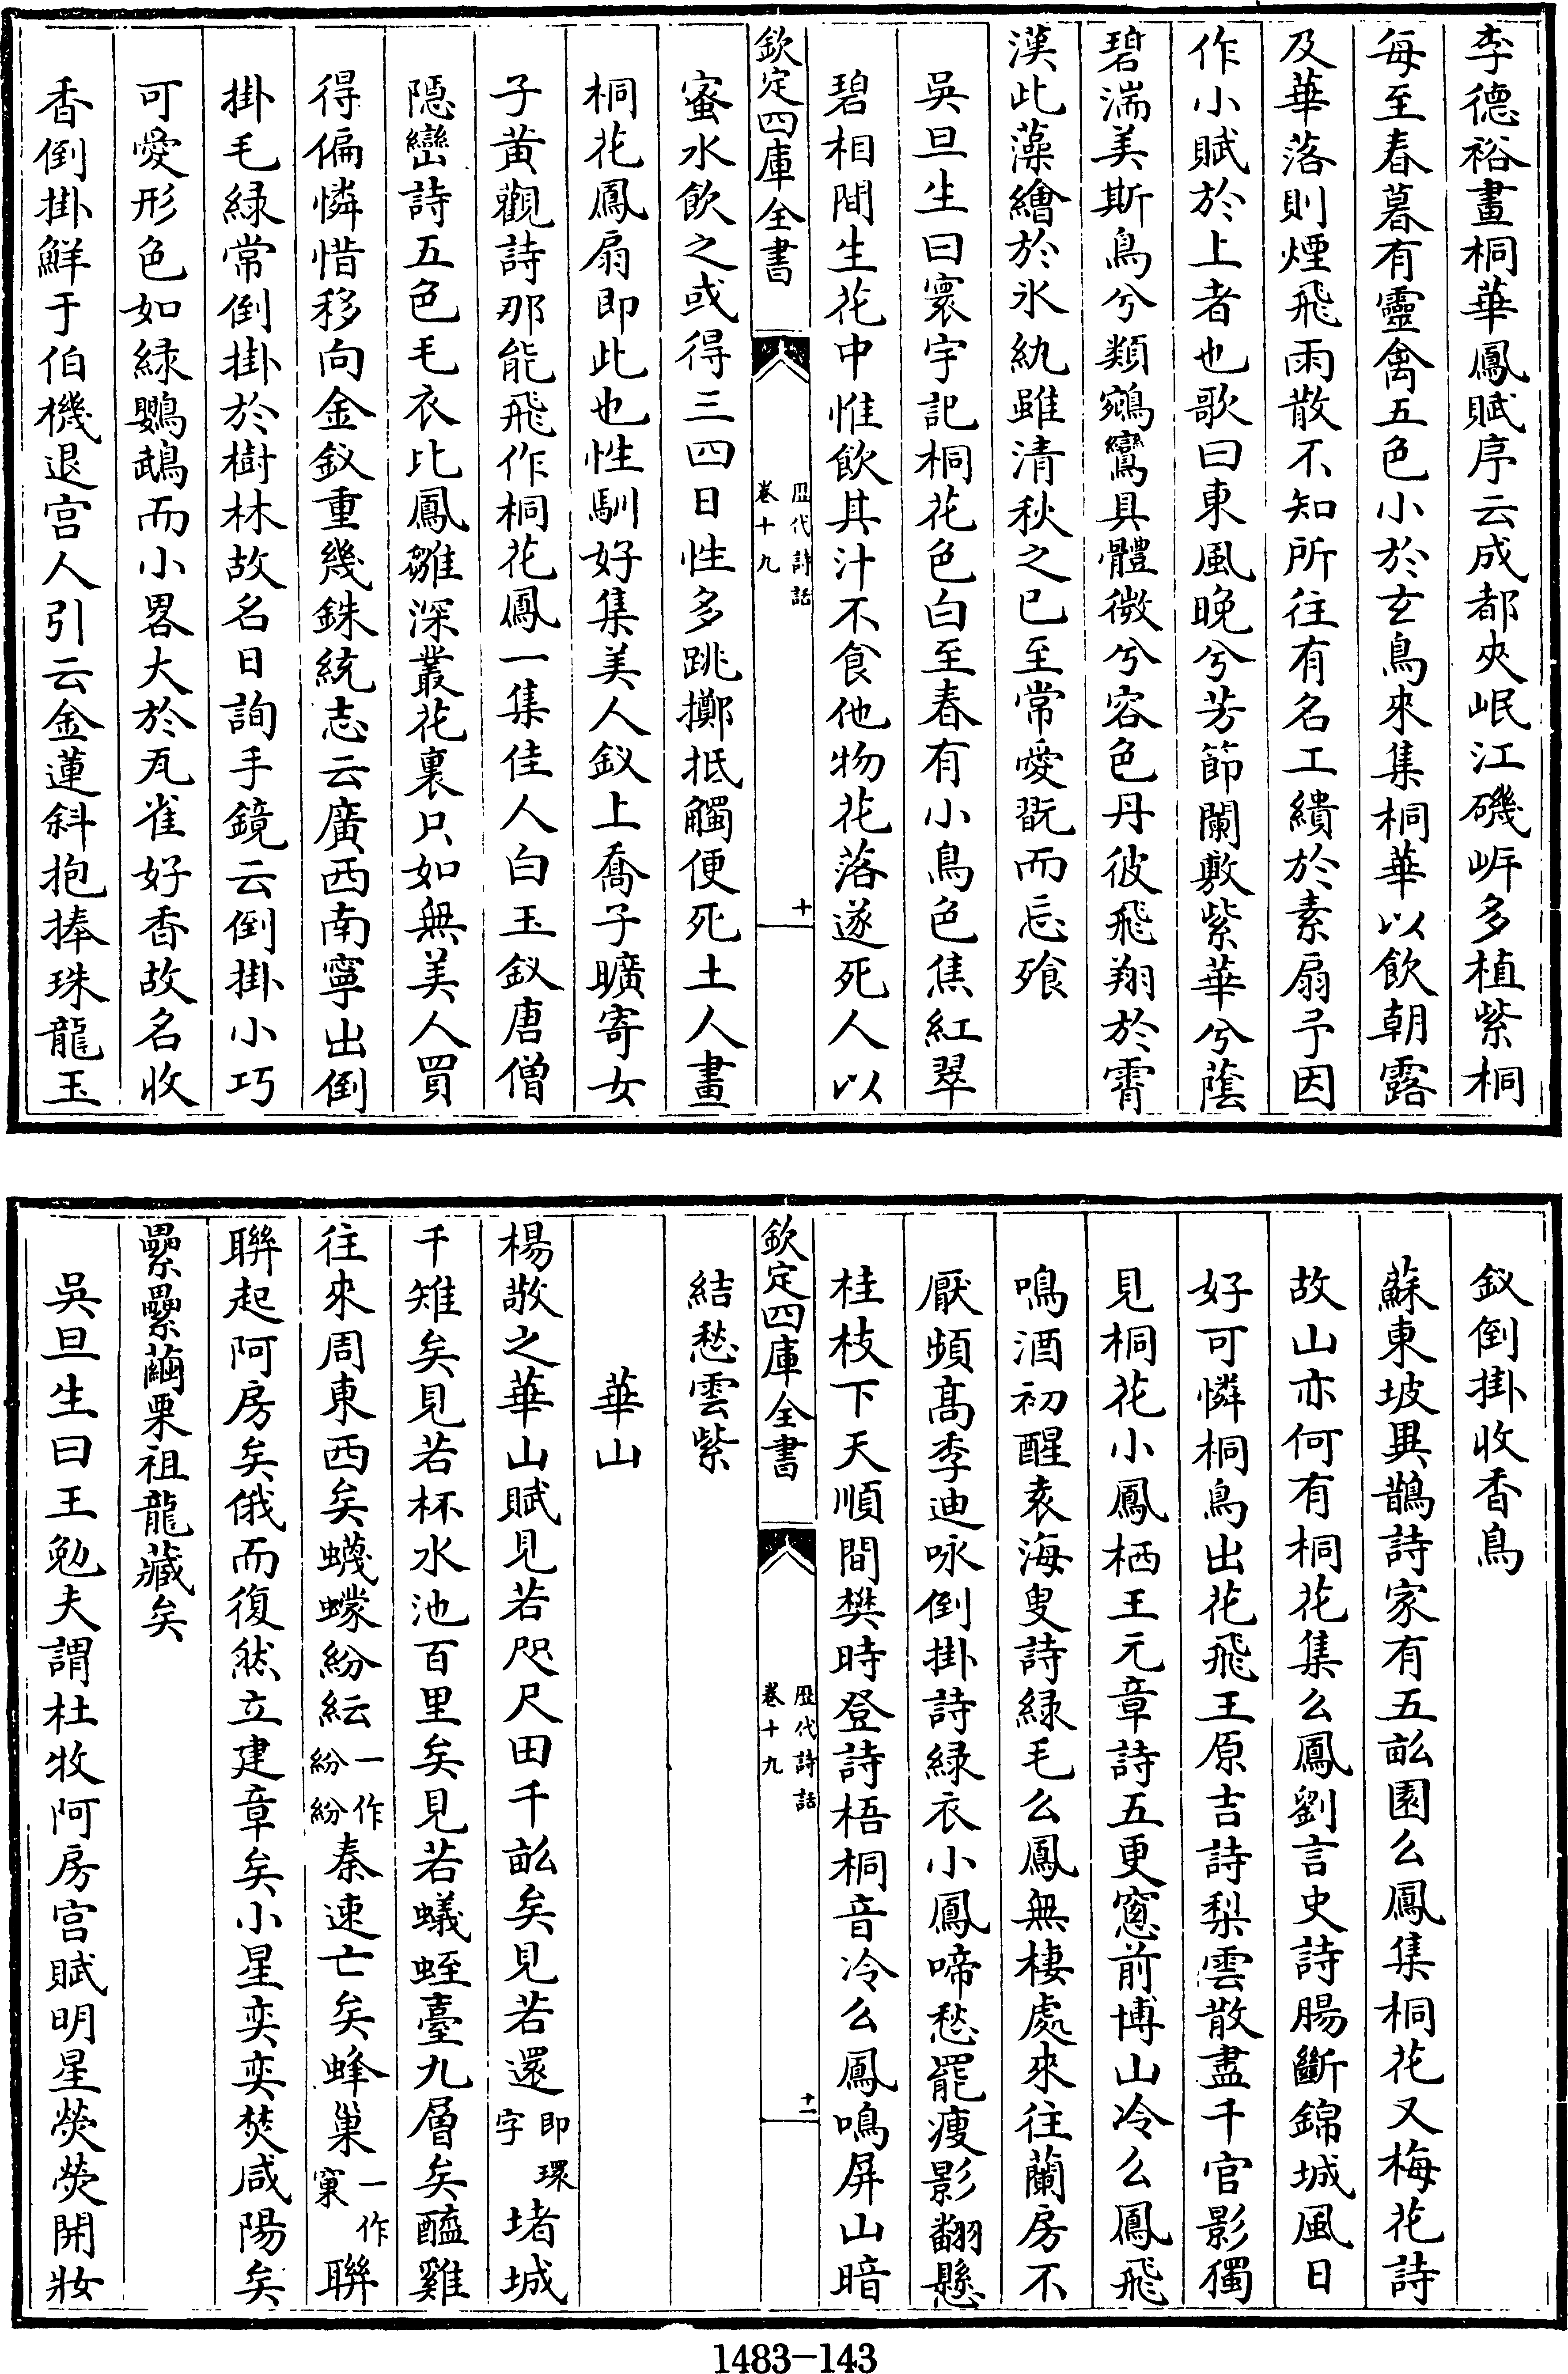 李德裕畫桐華鳳賦序云成都夾岷江磯岸多植紫桐
每至春暮有靈禽五色小於玄鳥來集桐華以飲朝露
及華落則煙飛雨散不知所往有名工繢於素扇予因
作小賦於上者也歌曰東風晚兮芳節闌敷紫華兮蔭
碧湍美斯鳥兮類鵷鸞具體微兮容色丹彼飛翔於霄
漢此藻繪於氷紈雖清秋之已至常愛翫而忘飱
吳旦生曰寰宇記桐花色白至春有小鳥色焦紅翠
碧相間生花中惟飲其汁不食他物花落遂死人以
欽定四庫全書
歷代詩話
卷十九
十
蜜水飲之或得三四日性多跳擲抵觸便死土人畫
桐花鳳扇即此也性馴好集美人釵上喬子曠寄女
子黃觀詩那能飛作桐花鳳一集佳人白玉釵唐僧
隱巒詩五色毛衣比鳳雛深叢花裏只如無美人買
得偏憐惜移向金釵重幾銖統志云廣西南寧出倒
掛毛緑常倒掛於樹林故名日詢手鏡云倒掛小巧
可愛形色如緑鸚鵡而小畧大於瓦雀好香故名收
香倒掛鮮于伯機退宫人引云金蓮斜抱捧珠龍玉
釵倒掛收香鳥
蘇東坡異鵲詩家有五畝園么鳳集桐花又梅花詩
故山亦何有桐花集么鳳劉言史詩腸斷錦城風日
好可憐桐鳥出花飛王原吉詩梨雲散盡千官影獨
見桐花小鳳栖王元章詩五更窻前博山冷么鳳飛
鳴酒初醒袁海叟詩緑毛么鳳無棲處來往蘭房不
厭頻髙季迪咏倒掛詩緑衣小鳳啼愁罷瘦影翻懸
桂枝下天順間樊時登詩梧桐音冷么鳳鳴屏山暗
欽定四庫全書
歷代詩話
卷十九
十一
結愁雲紫
華山
楊敬之華山賦見若咫尺田千畝矣見若還即環字堵城
千雉矣見若杯水池百里矣見若蟻蛭臺九層矣醯雞
往來周東西矣蠛蠓紛紜一作紛紛秦速亡矣蜂巢一作窠聯
聨起阿房矣俄而復然立建章矣小星奕奕焚咸陽矣
纍纍繭栗祖龍藏矣
吳旦生曰王勉夫謂杜牧阿房宫賦明星熒熒開妝
1483-143